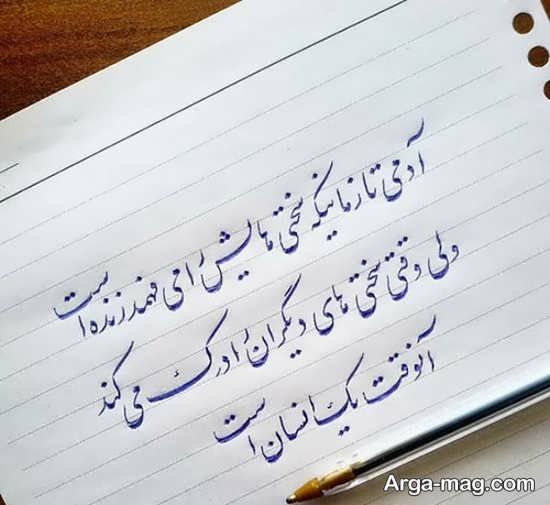 آدمی تا زمانیکه سختی هایش را می فهمد زنده است
ولی وقتی سختی های دیگران را درک می کند
آنوقت یک انسان است
Arga-mag.com